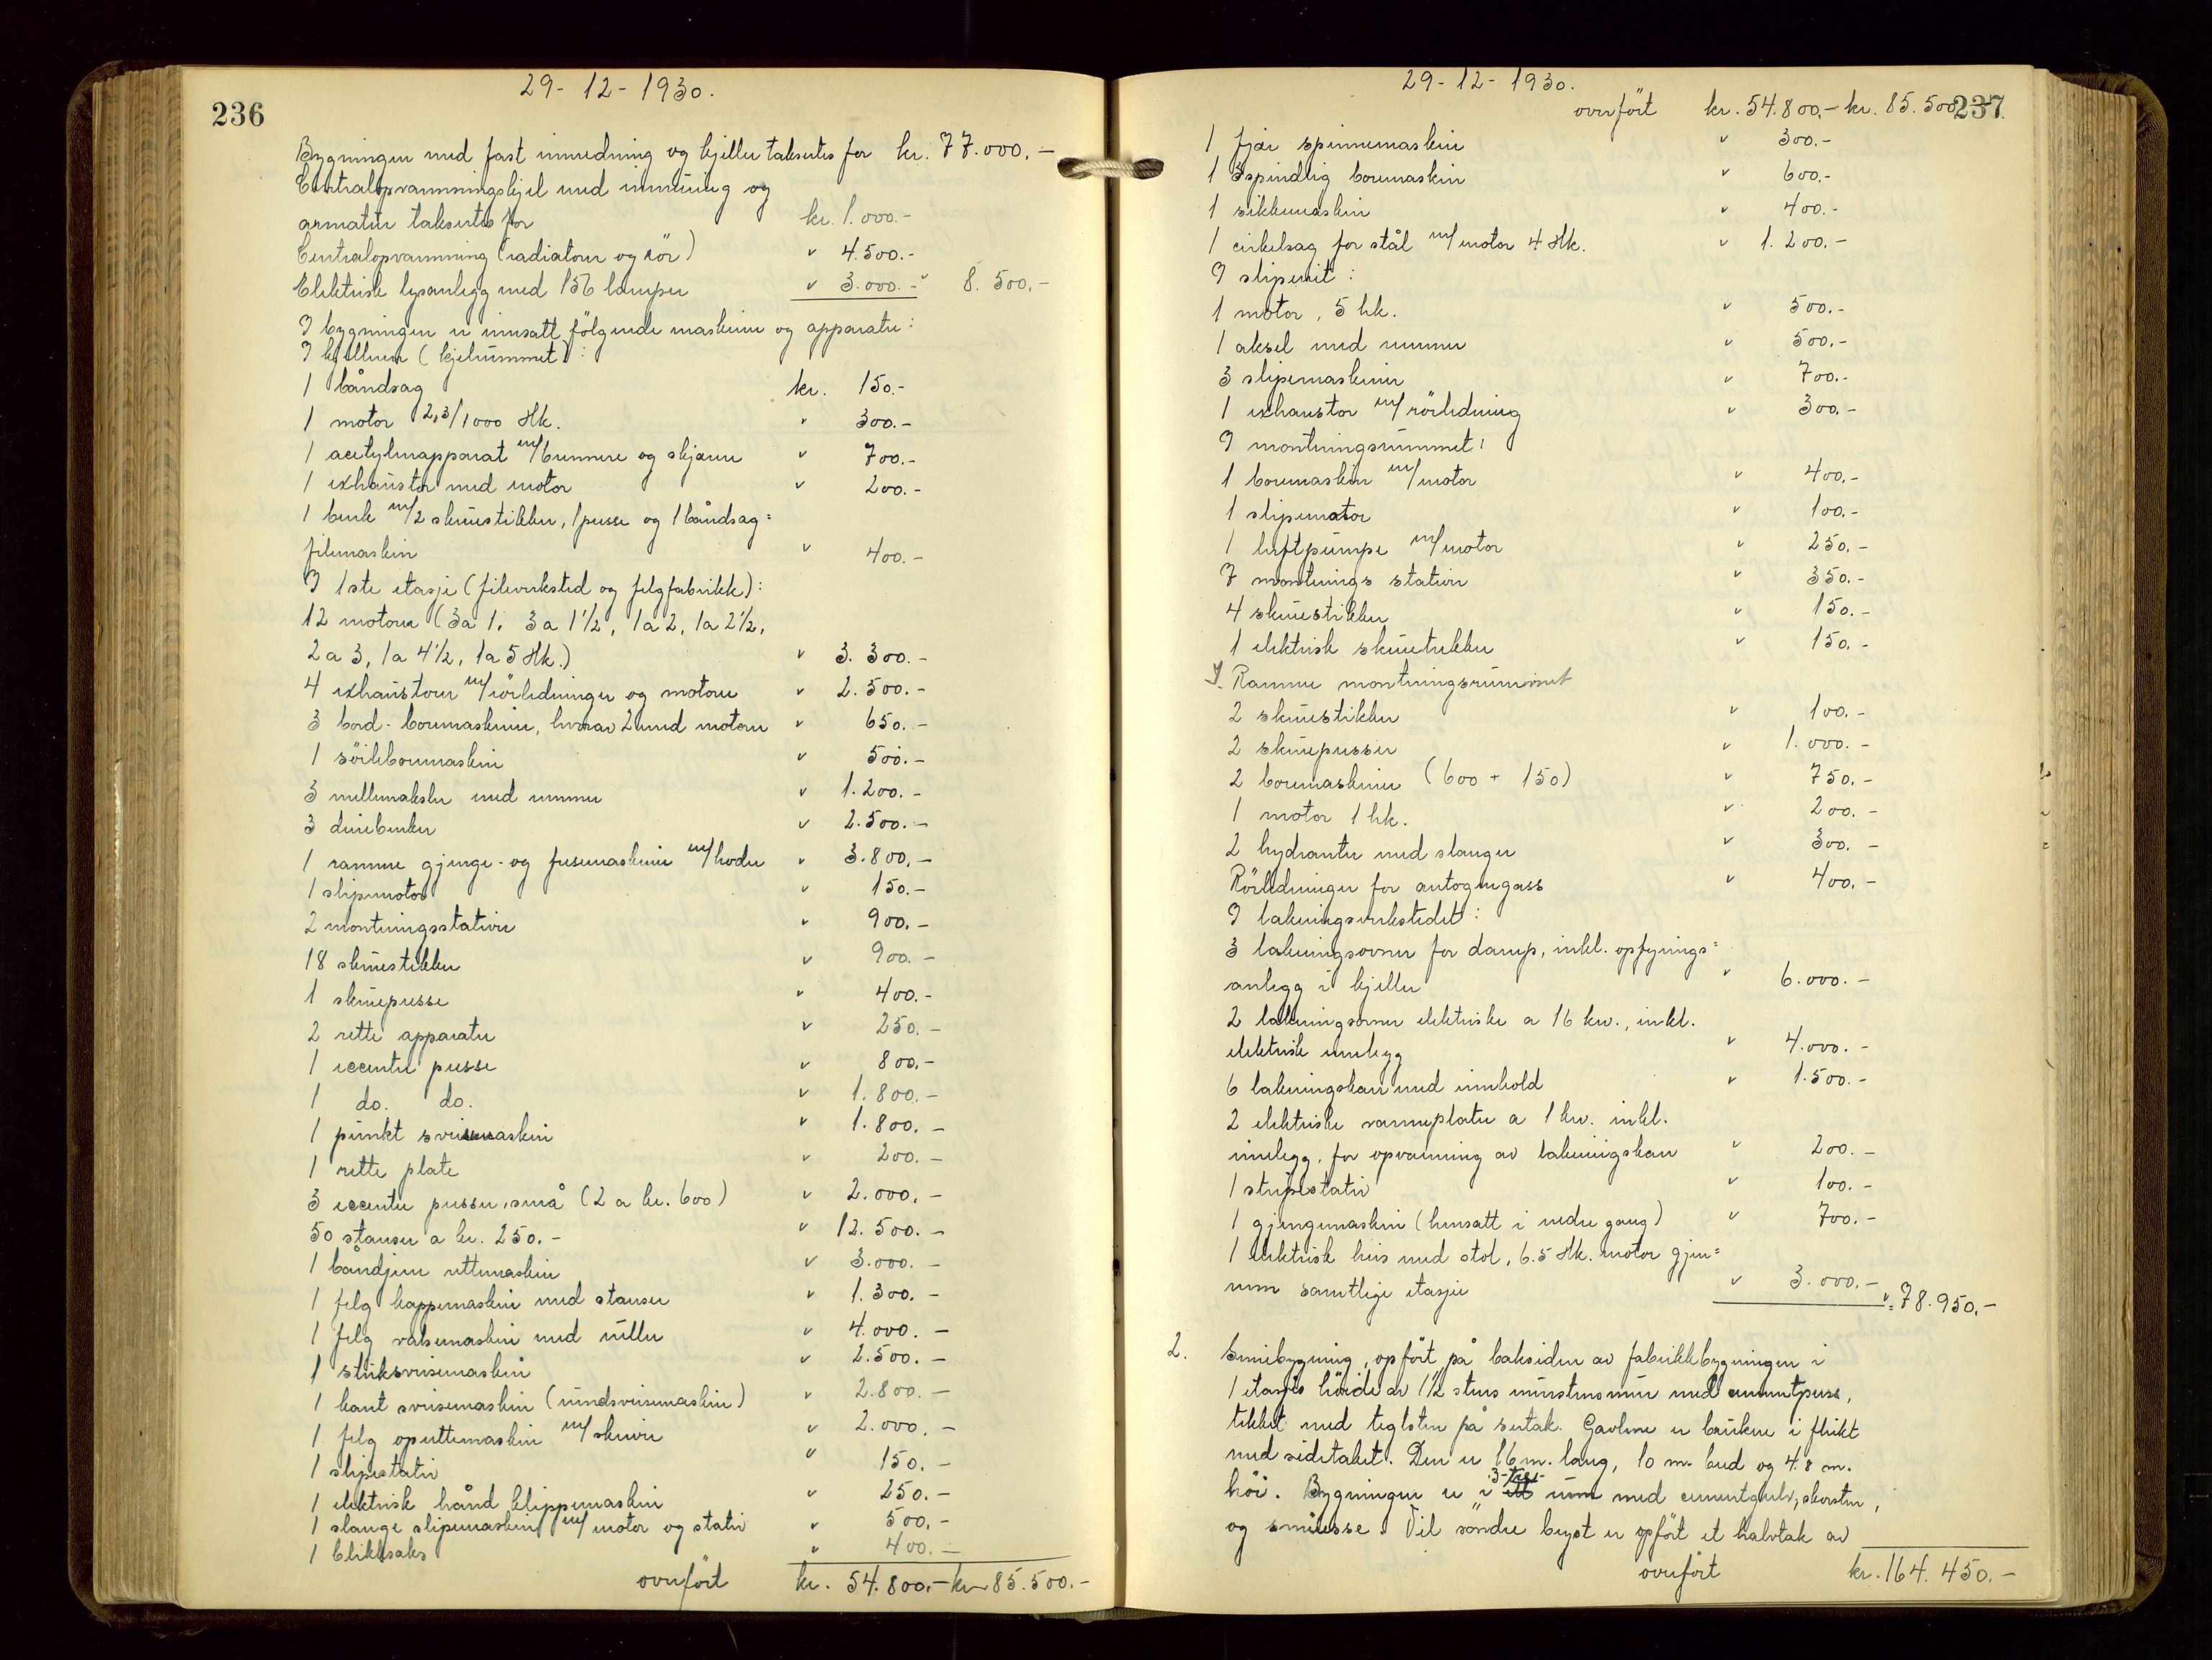 29-12-1930.
236
Bygningen med fast innredning og kjeller takseres for kr. 77.000.-
Centralopvarmningskjel med innmuring og
armatur takseres for kr. 1.000.-
Centralopvarmning (radiatorer og rör) " 4.500.-
Elektrisk lysanlegg med 156 lamper " 3.000.- " 8.500.-
I bygningen er innsatt fölgende maskiner og apparater:
I kjelleren (kjelrummet):
1 båndsag kr. 150.-
1 motor 2,3/1000 Hk. " 300.-
1 acetylenapparat m/brennere og skjærer " 700.-
1 exhaustor med motor " 200.-
1 benk m/2 skruestikker, 1 presse og 1 båndsag=
filemaskin " 400.-
I 1ste etasje (fileverksted og felgfabrikk):
12 motorer (3a 1, 3a 1½, 1a 2, 1a 2½,
2a 3, 1a 4½, 1a 5 Hk.) " 3.300.-
4 exhaustorer m/rörledninger og motorer " 2.500.-
3 bord-boremaskiner, hvorav 2 med motorer " 650.-
1 söileboremaskin " 500.-
3 mellemaksler med remmer " 1.200.-
3 dreiebenker " 2.500.-
1 ramme gjenge- og fresemaskin m/hoder " 3.800.-
1 slipemotor " 150.-
2 monteringsstativer " 900.-
18 skruestikker " 900.-
1 skruepresse " 400.-
2 rette apparater " 250.-
1 eccenter presse " 800.-
1 do. do. " 1.800.-
1 punkt sveisemaskin " 1.800.-
1 rette plate " 200.-
3 eccenter presser, små (2 a kr. 600) " 2.000.-
50 stanser a kr. 250.- " 12.500.-
1 båndjern rettemaskin " 3.000.-
1 felg kappemaskin med stanser " 1.300.-
1 felg valsemaskin med ruller " 4.000.-
1 stuksveisemaskin " 2.500.-
1 kant sveisemaskin (rundsveisemaskin) " 2.800.-
1 felg oprettemaskin m/skiver " 2.000.-
1 slipestativ " 150.-
1 elektrisk hånd klippemaskin " 250.-
1 slange slipemaskin m/motor og stativ " 500.-
1 blikksaks " 400.-
overfört kr. 54.800.- kr. 85.500.-
29-12-1930.
overfört kr. 54.800.- kr. 85.500.-
237
1 fjær spinnemaskin " 300.-
1 3spindlig boremaskin " 600.-
1 sikkemaskin " 400.-
1 cirkelsag for stål m/motor 4 Hk. " 1.200.-
I sliperiet:
1 motor, 5 hk. " 500.-
1 aksel med remmer " 500.-
3 slipemaskiner " 700.-
1 exhaustor m/rörledning " 300.-
I monteringsrummet:
1 boremaskin m/motor " 400.-
1 slipemotor " 100.-
1 luftpumpe m/motor " 250.-
7 monterings stativer " 350.-
4 skruestikker " 150.-
1 elektrisk skruetrekker " 150.-
I. Ramme monteringsrummet
2 skruestikker " 100.-
2 skruepresser " 1.000.-
2 boremaskiner (600 + 150) " 750.-
1 motor 1 hk. " 200.-
2 hydranter med slanger " 300.-
Rörledninger for autogengass " 400.-
I lakeringsverkstedet:
3 lakeringsovner for damp, inkl. opfyrings=
anlegg i kjeller " 6.000.-
2 lakeringsovner elektriske a 16 kw., inkl.
elektrisk innlegg " 4.000.-
6 lakeringskar med innhold " 1.500.-
2 elektriske varmeplater a 1 kw. inkl.
innlegg, for opvarming av lakeringskar " 200.-
1 stripestativ " 100.-
1 gjengemaskin (hensatt i nedre gang) " 700.-
1 elektrisk heis med stol, 6.5 Hk. motor gjen=
nem samtlige etasjer " 3.000.- " 78.950.-
2. Smiebygning, opfört på baksiden av fabrikkbygningen i
1 etasjes höide av 1½ stens murstensmur med cementpuss,
tekket med teglsten på sutak. Gavlene er brukne i flukt
med sidetaket. Den er 16 m. lang, 10 m. bred og 4.8 m.
höi. Bygningen er i ett 3-tre- rum med cementgulv, skorsten,
og smieesse. Til söndre langs er opfört et halvtak av
overfört kr. 164.450.-